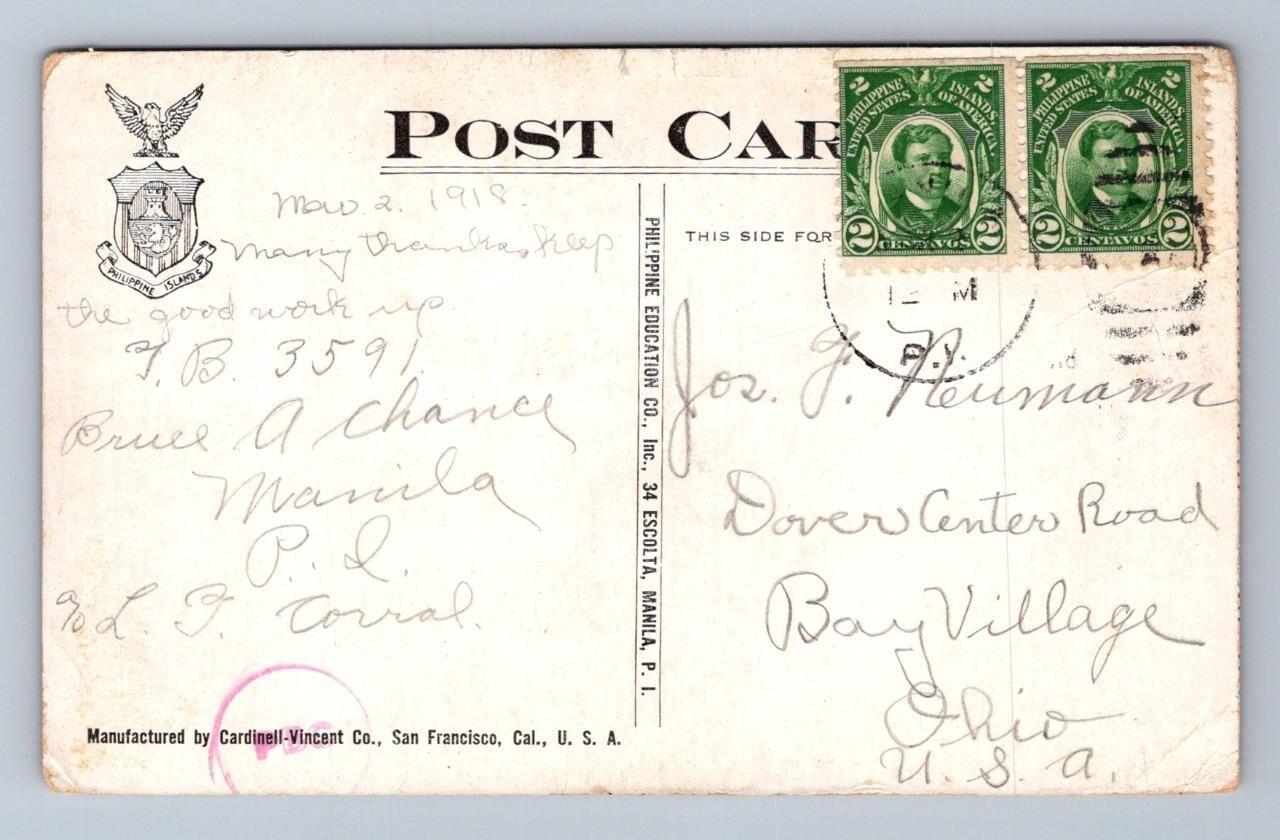 POST CAR
PHILIPPINE ISLANDS
Mar. 2. 1918.
Many thanks Keep
the good work up.
T. B. 3591
Bruce A Chance
Manila
P. I.
c/o L. F. Corral.
Manufactured by Cardinell-Vincent Co., San Francisco, Cal., U. S. A.
PHILIPPINE EDUCATION CO., Inc., 34 ESCOLTA, MANILA, P. I.
THIS SIDE FOR
2 2
PHILIPPINE ISLANDS.
UNITED STATES OF AMERICA.
2 CENTAVOS 2
2 2
PHILIPPINE ISLANDS.
UNITED STATES OF AMERICA.
2 CENTAVOS 2
M
P.I.
Jos. J. Neumann
Dover Center Road
Bay Village
Ohio
U. S. A.